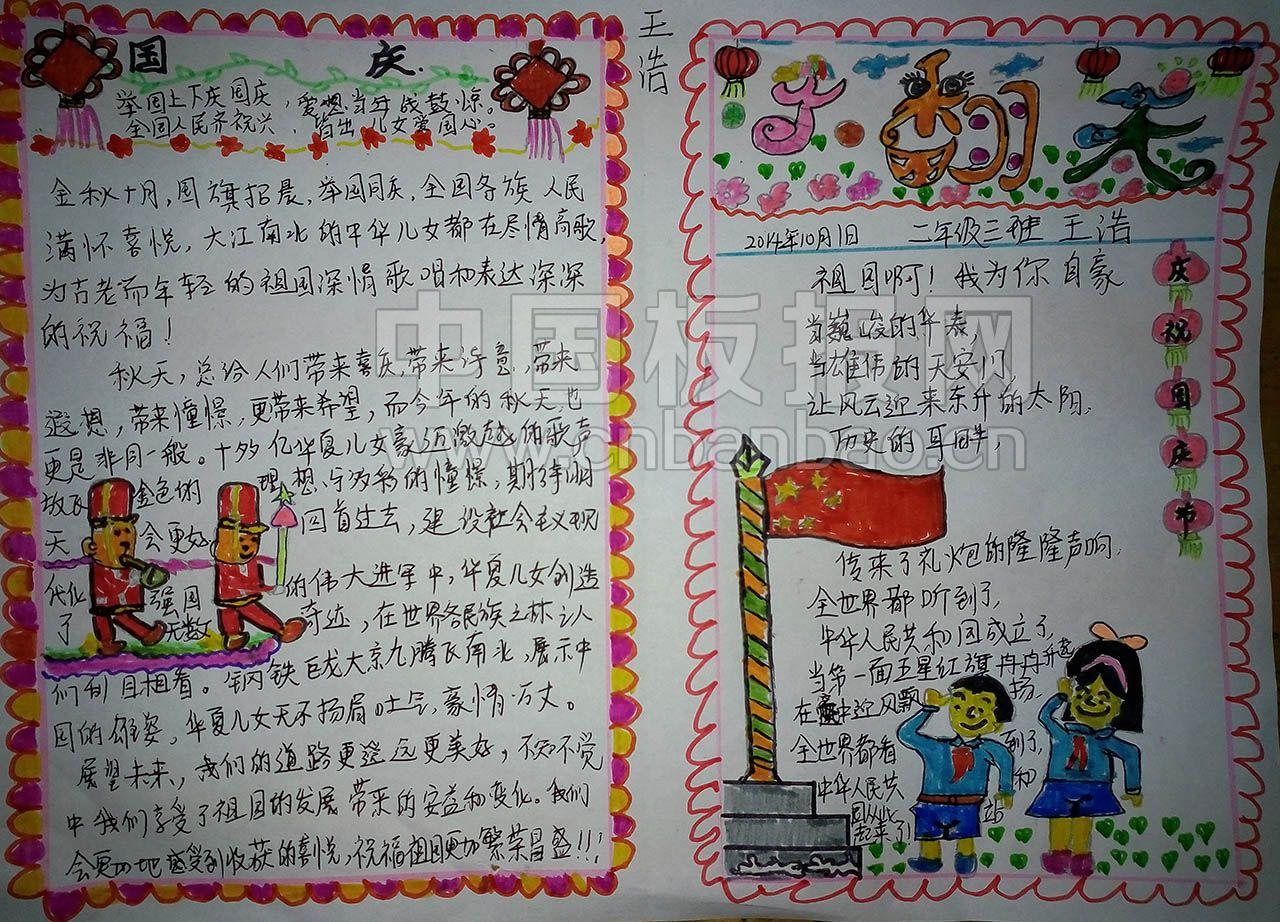 国 庆
举国上下庆国庆，爱恨当分战鼓惊。
全国人民齐祝兴，皆出儿女爱国心。
金秋十月，国旗招展，举国同庆，全国各族人民
满怀喜悦，大江南北的中华儿女都在尽情高歌，
为古老而年轻的祖国深情歌唱和表达深深
的祝福！
秋天，总给人们带来喜庆，带来诗意，带来
遐想，带来憧憬，更带来希望，而今年的秋天也
更是非同一般。十多亿华夏儿女豪迈激越的歌声
放飞 金色的 理想，的憧憬，期待明
天 会更好 回首过去，建设社会主义现
代化 强国 的伟大进军中，华夏儿女创造
了 无数 奇迹，在世界各民族之林令人
们刮目相看。钢铁巨龙大京九腾飞南北，展示中
国的雄姿，华夏儿女无不扬眉吐气，豪情万丈。
展望未来，我们的道路更遥远更美好，不知不觉
中我们享受了祖国的发展带来的安益和变化。我们
会更加地感受到收获的喜悦，祝福祖国更加繁荣昌盛！！！
王浩
子翻天
2014年10月1日 二年级三班 王浩
祖国啊！我为你自豪
当巍峻的华表，
当雄伟的天安门
让风云迎来东升的太阳，
历史的耳畔，
传来了礼炮的隆隆声响，
全世界都听到了，
中华人民共和国成立了，
当第一面五星红旗冉冉升起
在中迎风飘扬，
全世界都看到了，
中华人民共和
国从此站
起来了！
庆祝国庆节
中国板报网
www.cnbanbao.cn